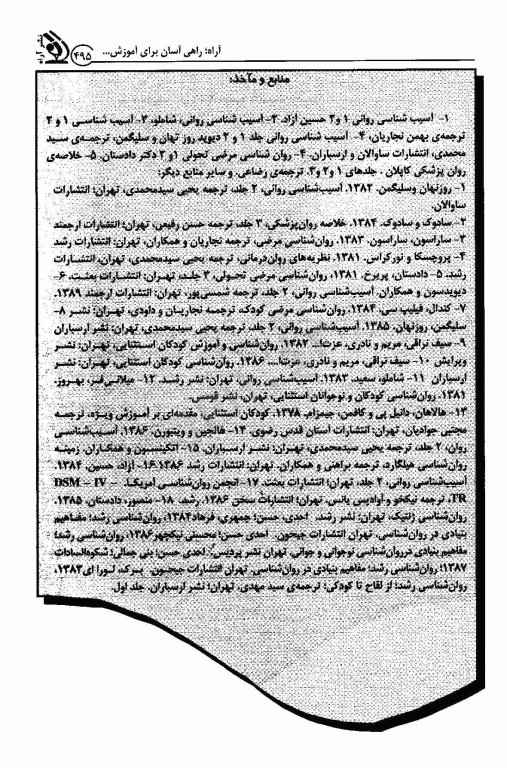 آراه؛ راهی آسان برای آموزش...
۴۹۵
نشر آراه
منابع و مآخذ:
۱- آسیب شناسی روانی ۱ و۲ حسین آزاد. ۲- آسیب شناسی روانی، شاملو، ۳- آسیب شناسی ۱ و ۲
ترجمه‌ی بهمن نجاریان، ۴- آسیب شناسی روانی جلد ۱ و ۲ دیوید روز تهان و سلیگمن، ترجمه‌ی سید
محمدی، انتشارات ساوالان و ارسباران. ۴- روان شناسی مرضی تحولی ۱و ۲ دکتر دادستان. ۵- خلاصه‌ی
روان پزشکی کاپلان . جلدهای ۱ و ۲و ۳. ترجمه‌ی رضاعی. و سایر منابع دیگر:
۱- روزنهان وسلیگمن. ۱۳۸۲. آسیب‌شناسی روانی، ۲ جلد، ترجمه یحیی سیدمحمدی، تهران: انتشارات
ساوالان.
۲- سادوک و سادوک. ۱۳۸۴. خلاصه روان‌پزشکی، ۳ جلد، ترجمه حسن رفیعی، تهران: انتشارات ارجمند
۳- ساراسون، ساراسون. ۱۳۸۳. روان‌شناسی مرضی، ترجمه نجاریان و همکاران، تهران: انتشارات رشد
۴- پروچسکا و نورکراس. ۱۳۸۱. نظریه‌های روان‌درمانی، ترجمه یحیی سیدمحمدی، تهران، انتشارات
رشد. ۵- دادستان، پریرخ. ۱۳۸۱. روان‌شناسی مرضی تحولی، ۲ جلد، تهران: انتشارات بعثت. ۶-
دیویدسون و همکاران. آسیب‌شناسی روانی، ۲ جلد، ترجمه شمسی‌پور، تهران: انتشارات ارجمند. ۱۳۸۹.
۷- کندال، فیلیپ سی. ۱۳۸۴. روان‌شناسی مرضی کودک، ترجمه نجاریان و داودی، تهران: نشر ۸-
سلیگمن، روزنهان. ۱۳۸۵. آسیب‌شناسی روانی، ۲ جلد، ترجمه یحیی سیدمحمدی، تهران: نشر ارسباران
۹- سیف نراقی، مریم و نادری، عزت‌ا... ۱۳۸۲. روان‌شناسی و آموزش کودکان استثنایی، تهران: نشر
ویرایش ۱۰- سیف نراقی، مریم و نادری، عزت‌ا... ۱۳۸۶. روان‌شناسی کودکان استثنایی، تهران: نشر
ارسباران ۱۱- شاملو، سعید. ۱۳۸۳. آسیب‌شناسی روانی، تهران: نشر رشد. ۱۲- میلانی‌فر، بهروز.
۱۳۸۱. روان‌شناسی کودکان و نوجوانان استثنایی، تهران، نشر قومس.
۱۳- هالاهان، دانیل پی و کافمن، جیمزام. ۱۳۷۸. کودکان استثنایی، مقدمه‌ای بر آموزش ویژه، ترجمه
مجتبی جوادیان، تهران: انتشارات آستان قدس رضوی. ۱۴- هالجین و ویتبورن. ۱۳۸۶. آسیب‌شناسی
روان، ۲ جلد، ترجمه یحیی سیدمحمدی، تهران: نشر ارسباران. ۱۵- اتکینسون و همکاران. زمینه
روان‌شناسی هیلگارد، ترجمه براهنی و همکاران. تهران: انتشارات رشد ۱۳۸۶. ۱۶- آزاد، حسین، ۱۳۸۴.
آسیب‌شناسی روانی، ۲ جلد، تهران: انتشارات بعثت. ۱۷- انجمن روان‌شناسی آمریکا. DSM - IV -
TR، ترجمه نیکخو و آوادیس یانس، تهران: انتشارات سخن ۱۳۸۶. رشد. ۱۸- منصور، دادستان، ۱۳۸۵.
روان‌شناسی ژنتیک، تهران: نشر رشد. احدی، حسن؛ جمهری، فرهاد۱۳۸۴، روان‌شناسی رشد؛ مفاهیم
بنیادی در روان‌شناسی، تهران: انتشارات جیحون. احدی حسن؛ محسنی نیکچهر۱۳۸۶، روان‌شناسی رشد؛
مفاهیم بنیادی درروان‌شناسی نوجوانی و جوانی. تهران: نشر پردیس. احدی حسن؛ بنی جمالی؛ شکوه‌السادات
۱۳۸۷؛ روان‌شناسی رشد؛ مفاهیم بنیادی در روان‌شناسی، تهران: انتشارات جیحون. برک، لورا ای۱۳۸۲،
روان‌شناسی رشد؛ از لقاح تا کودکی؛ ترجمه‌ی سید مهدی، تهران: نشر ارسباران. جلد اول.